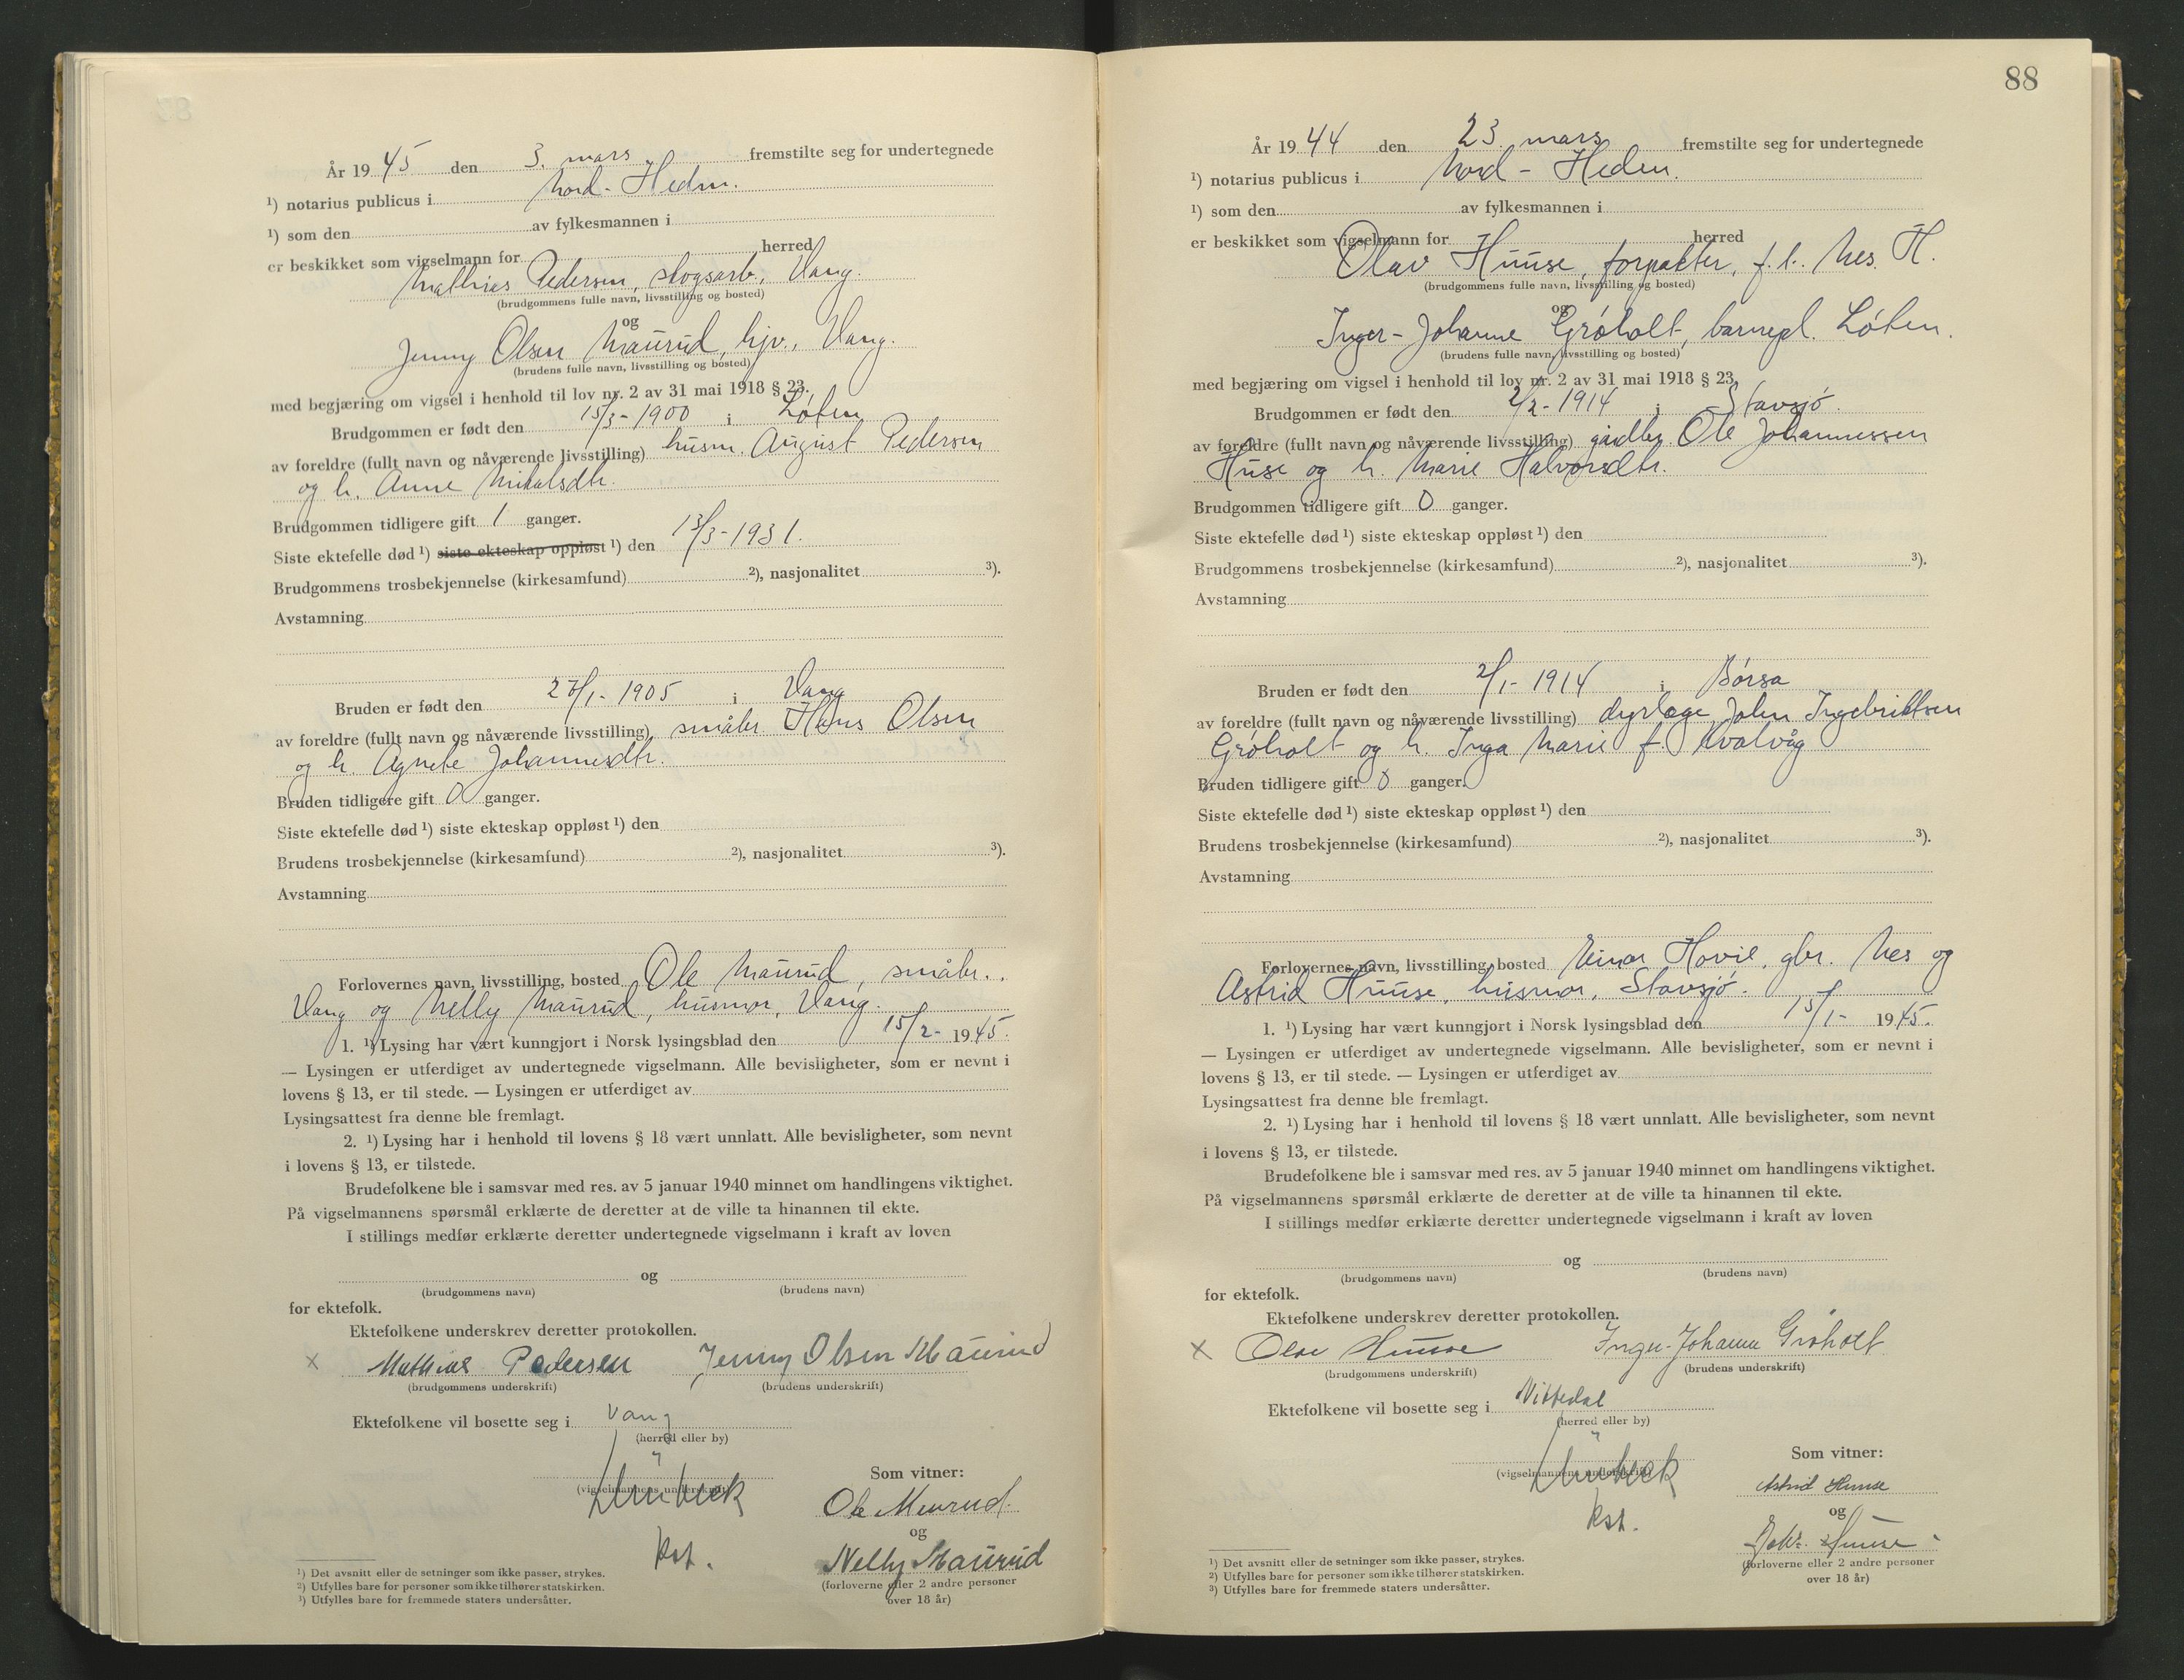 År 19 45 den 3. mars fremstilte seg for undertegnede
¹) notarius publicus i Nord-Hedm.
¹) som den av fylkesmannen i
er beskikket som vigselmann for herred
Mathias Pedersen, skogsarb., Vang.
(brudgommens fulle navn, livsstilling og bosted)
og
Jenny Olsen Maurud, hjv., Vang.
(brudens fulle navn, livsstilling og bosted)
med begjæring om vigsel i henhold til lov nr. 2 av 31 mai 1918 § 23.
Brudgommen er født den 15/3-1900 i Løten
av foreldre (fullt navn og nåværende livsstilling) husm. August Pedersen
og h. Anne Mikalsdtr.
Brudgommen tidligere gift 1 ganger.
Siste ektefelle død ¹) siste ekteskap oppløst ¹) den 13/3-1931.
Brudgommens trosbekjennelse (kirkesamfund) ²), nasjonalitet ³).
Avstamning
Bruden er født den 27/1-1905 i Vang
av foreldre (fullt navn og nåværende livsstilling) småbr Hans Olsen
og h. Agnete Johannesdtr.
Bruden tidligere gift 0 ganger.
Siste ektefelle død ¹) siste ekteskap oppløst ¹) den
Brudens trosbekjennelse (kirkesamfund) ²), nasjonalitet ³).
Avstamning
Forlovernes navn, livsstilling, bosted Ole Maurud, småbr.,
Vang og Nelly Maurud, husmor, Vang.
1. ¹) Lysing har vært kunngjort i Norsk lysingsblad den 15/2- 1945.
— Lysingen er utferdiget av undertegnede vigselmann. Alle bevisligheter, som er nevnt i
lovens § 13, er til stede. — Lysingen er utferdiget av
Lysingsattest fra denne ble fremlagt.
2. ¹) Lysing har i henhold til lovens § 18 vært unnlatt. Alle bevisligheter, som nevnt
i lovens § 13, er tilstede.
Brudefolkene ble i samsvar med res. av 5 januar 1940 minnet om handlingens viktighet.
På vigselmannens spørsmål erklærte de deretter at de ville ta hinannen til ekte.
I stillings medfør erklærte deretter undertegnede vigselmann i kraft av loven
og
(brudgommens navn) (brudens navn)
for ektefolk.
Ektefolkene underskrev deretter protokollen.
x Mathias Pedersen Jenny Olsen Maurud
(brudgommens underskrift) (brudens underskrift)
Ektefolkene vil bosette seg i Vang
(herred eller by)
Som vitner:
(vigselmannens underskrift)
Ole Maurud.
og
Nelly Maurud
(forloverne eller 2 andre personer
over 18 år)
¹) Det avsnitt eller de setninger som ikke passer, strykes.
²) Utfylles bare for personer som ikke tilhører statskirken.
³) Utfylles bare for fremmede staters undersåtter.
88
År 19 44 den 23. mars fremstilte seg for undertegnede
¹) notarius publicus i Nord-Hedm.
¹) som den av fylkesmannen i
er beskikket som vigselmann for herred
Olav Huuse, forpakter, f.t. Nes H.
(brudgommens fulle navn, livsstilling og bosted)
og
Inger-Johanne Grøholt, barnepl. Løten.
(brudens fulle navn, livsstilling og bosted)
med begjæring om vigsel i henhold til lov nr. 2 av 31 mai 1918 § 23.
Brudgommen er født den 2/2-1914 i Stavsjø.
av foreldre (fullt navn og nåværende livsstilling) gårdbr Ole Johannessen
Huse og h. Marie Halvorsdtr.
Brudgommen tidligere gift 0 ganger.
Siste ektefelle død ¹) siste ekteskap oppløst ¹) den
Brudgommens trosbekjennelse (kirkesamfund) ²), nasjonalitet ³).
Avstamning
Bruden er født den 2/1-1914 i Børsa
av foreldre (fullt navn og nåværende livsstilling) dyrlæge John Ingebriktsen
Grøholt og h. Inga Marie f. Kvalvåg
Bruden tidligere gift 0 ganger.
Siste ektefelle død ¹) siste ekteskap oppløst ¹) den
Brudens trosbekjennelse (kirkesamfund) ²), nasjonalitet ³).
Avstamning
Forlovernes navn, livsstilling, bosted Einar Hovie, gbr. Nes og
Astrid Huuse, husmor, Stavsjø.
1. ¹) Lysing har vært kunngjort i Norsk lysingsblad den 15/1- 1945.
— Lysingen er utferdiget av undertegnede vigselmann. Alle bevisligheter, som er nevnt i
lovens § 13, er til stede. — Lysingen er utferdiget av
Lysingsattest fra denne ble fremlagt.
2. ¹) Lysing har i henhold til lovens § 18 vært unnlatt. Alle bevisligheter, som nevnt
i lovens § 13, er tilstede.
Brudefolkene ble i samsvar med res. av 5 januar 1940 minnet om handlingens viktighet.
På vigselmannens spørsmål erklærte de deretter at de ville ta hinannen til ekte.
I stillings medfør erklærte deretter undertegnede vigselmann i kraft av loven
og
(brudgommens navn) (brudens navn)
for ektefolk.
Ektefolkene underskrev deretter protokollen.
x Olav Huuse Inger-Johanne Grøholt
(brudgommens underskrift) (brudens underskrift)
Ektefolkene vil bosette seg i Nittedal
(herred eller by)
Som vitner:
(vigselmannens underskrift)
Astrid Huuse
og
Huuse
(forloverne eller 2 andre personer
over 18 år)
¹) Det avsnitt eller de setninger som ikke passer, strykes.
²) Utfylles bare for personer som ikke tilhører statskirken.
³) Utfylles bare for fremmede staters undersåtter.